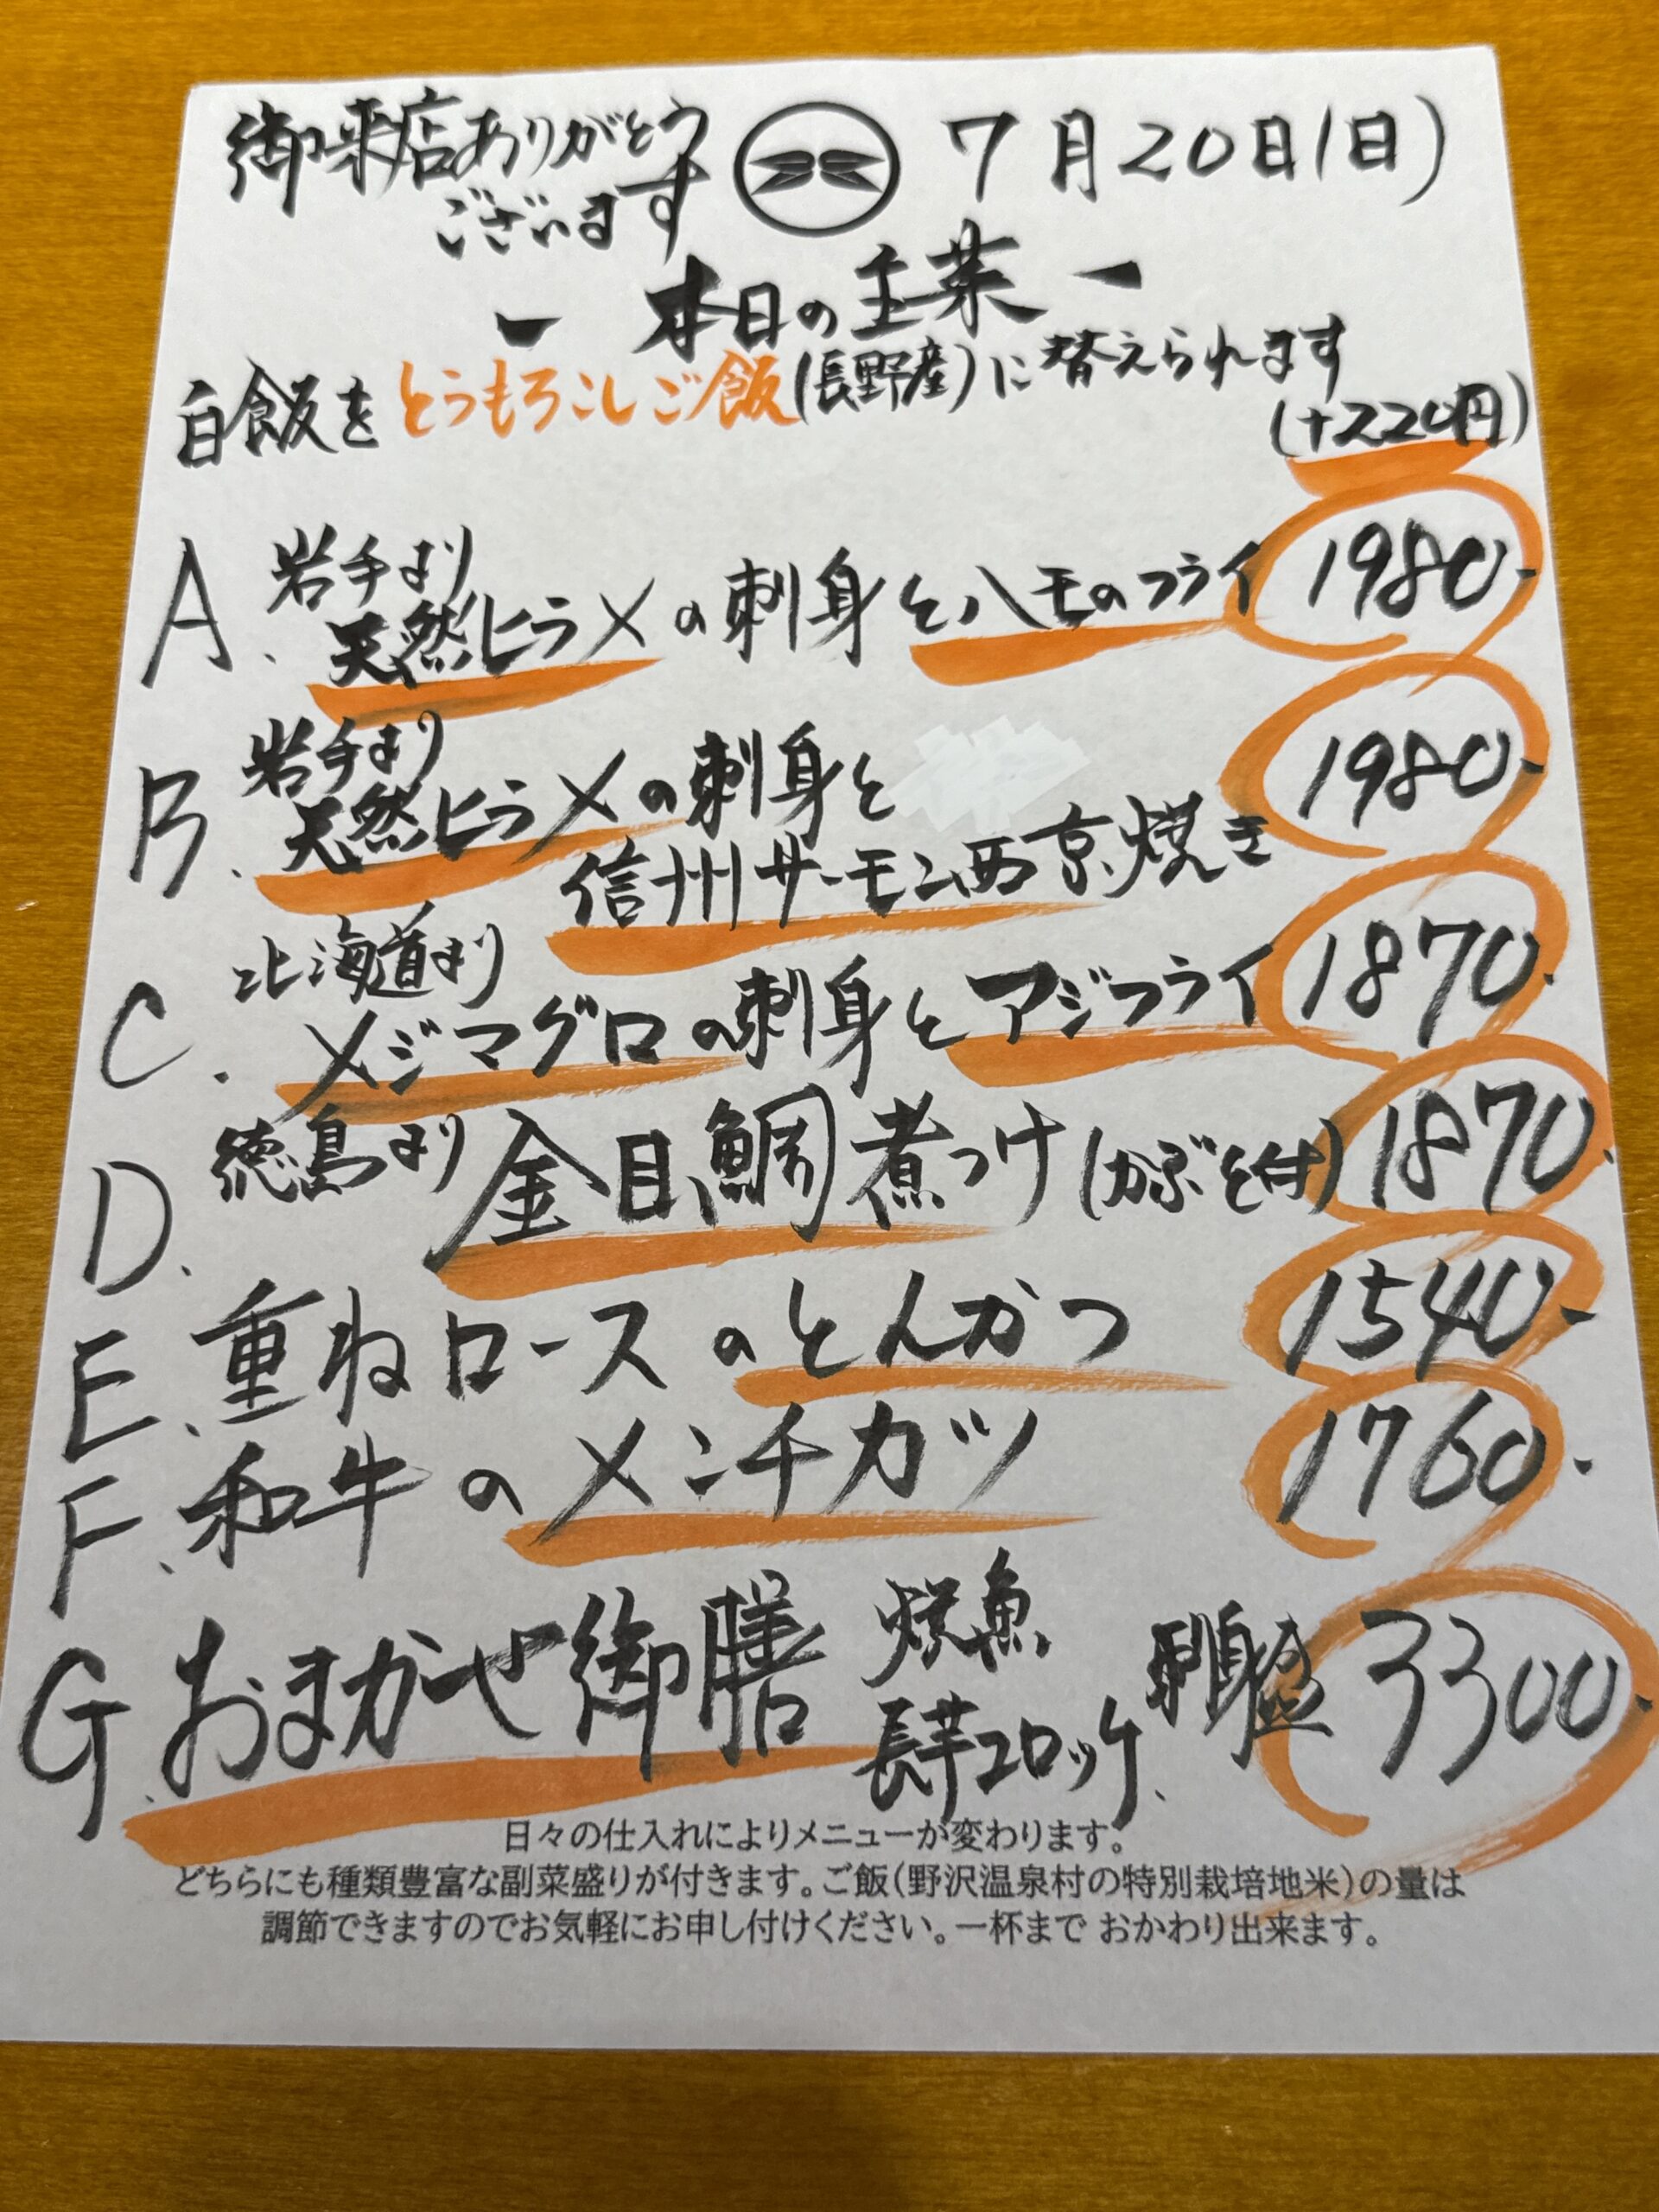 御来店ありがとう
ございます
7月20日(日)
ー 本日の主菜 ー
白飯をとうもろこしご飯(長野産)に替えられます
(+220円)
A. 岩手より
天然ヒラメの刺身とハモのフライ 1980-
B. 岩手より
天然ヒラメの刺身と 1980-
信州サーモン西京焼き
C. 北海道より
メジマグロの刺身とアジフライ 1870.
D. 徳島より 金目鯛煮つけ(かぶと付) 1870.
E. 重ねロースのとんかつ 1540-
F. 和牛のメンチカツ 1760.
G. おまかせ御膳 焼魚 刺身盛 3300.
長芋コロッケ
日々の仕入れによりメニューが変わります。
どちらにも種類豊富な副菜盛りが付きます。ご飯(野沢温泉村の特別栽培地米)の量は
調節できますのでお気軽にお申し付けください。一杯まで おかわり出来ます。